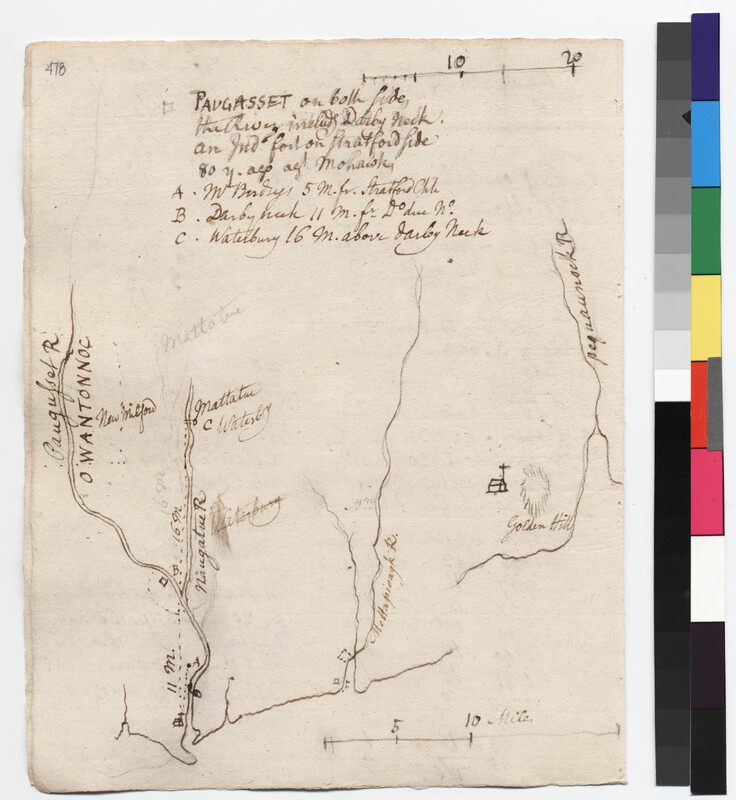 478
10 20
PAUGASSET on both side,
the River includg Darby Neck.
an Indn fort on Stratford side
80 y. ago agt Mohawks
A. Mr Birdseys 5 M. fr. Stratford Chh
B. Darby neck 11 M. fr Do due No.
C. Waterbury 16 M. above Darby Neck
Paugusset R
OWANTONNOC
Mattatue
New Milford
Mattatue
C Waterby
pequaunock R
16 M
16 M
Naugatue R
Waterbury
Golden Hill
B
A
11 M.
5 10 Miles